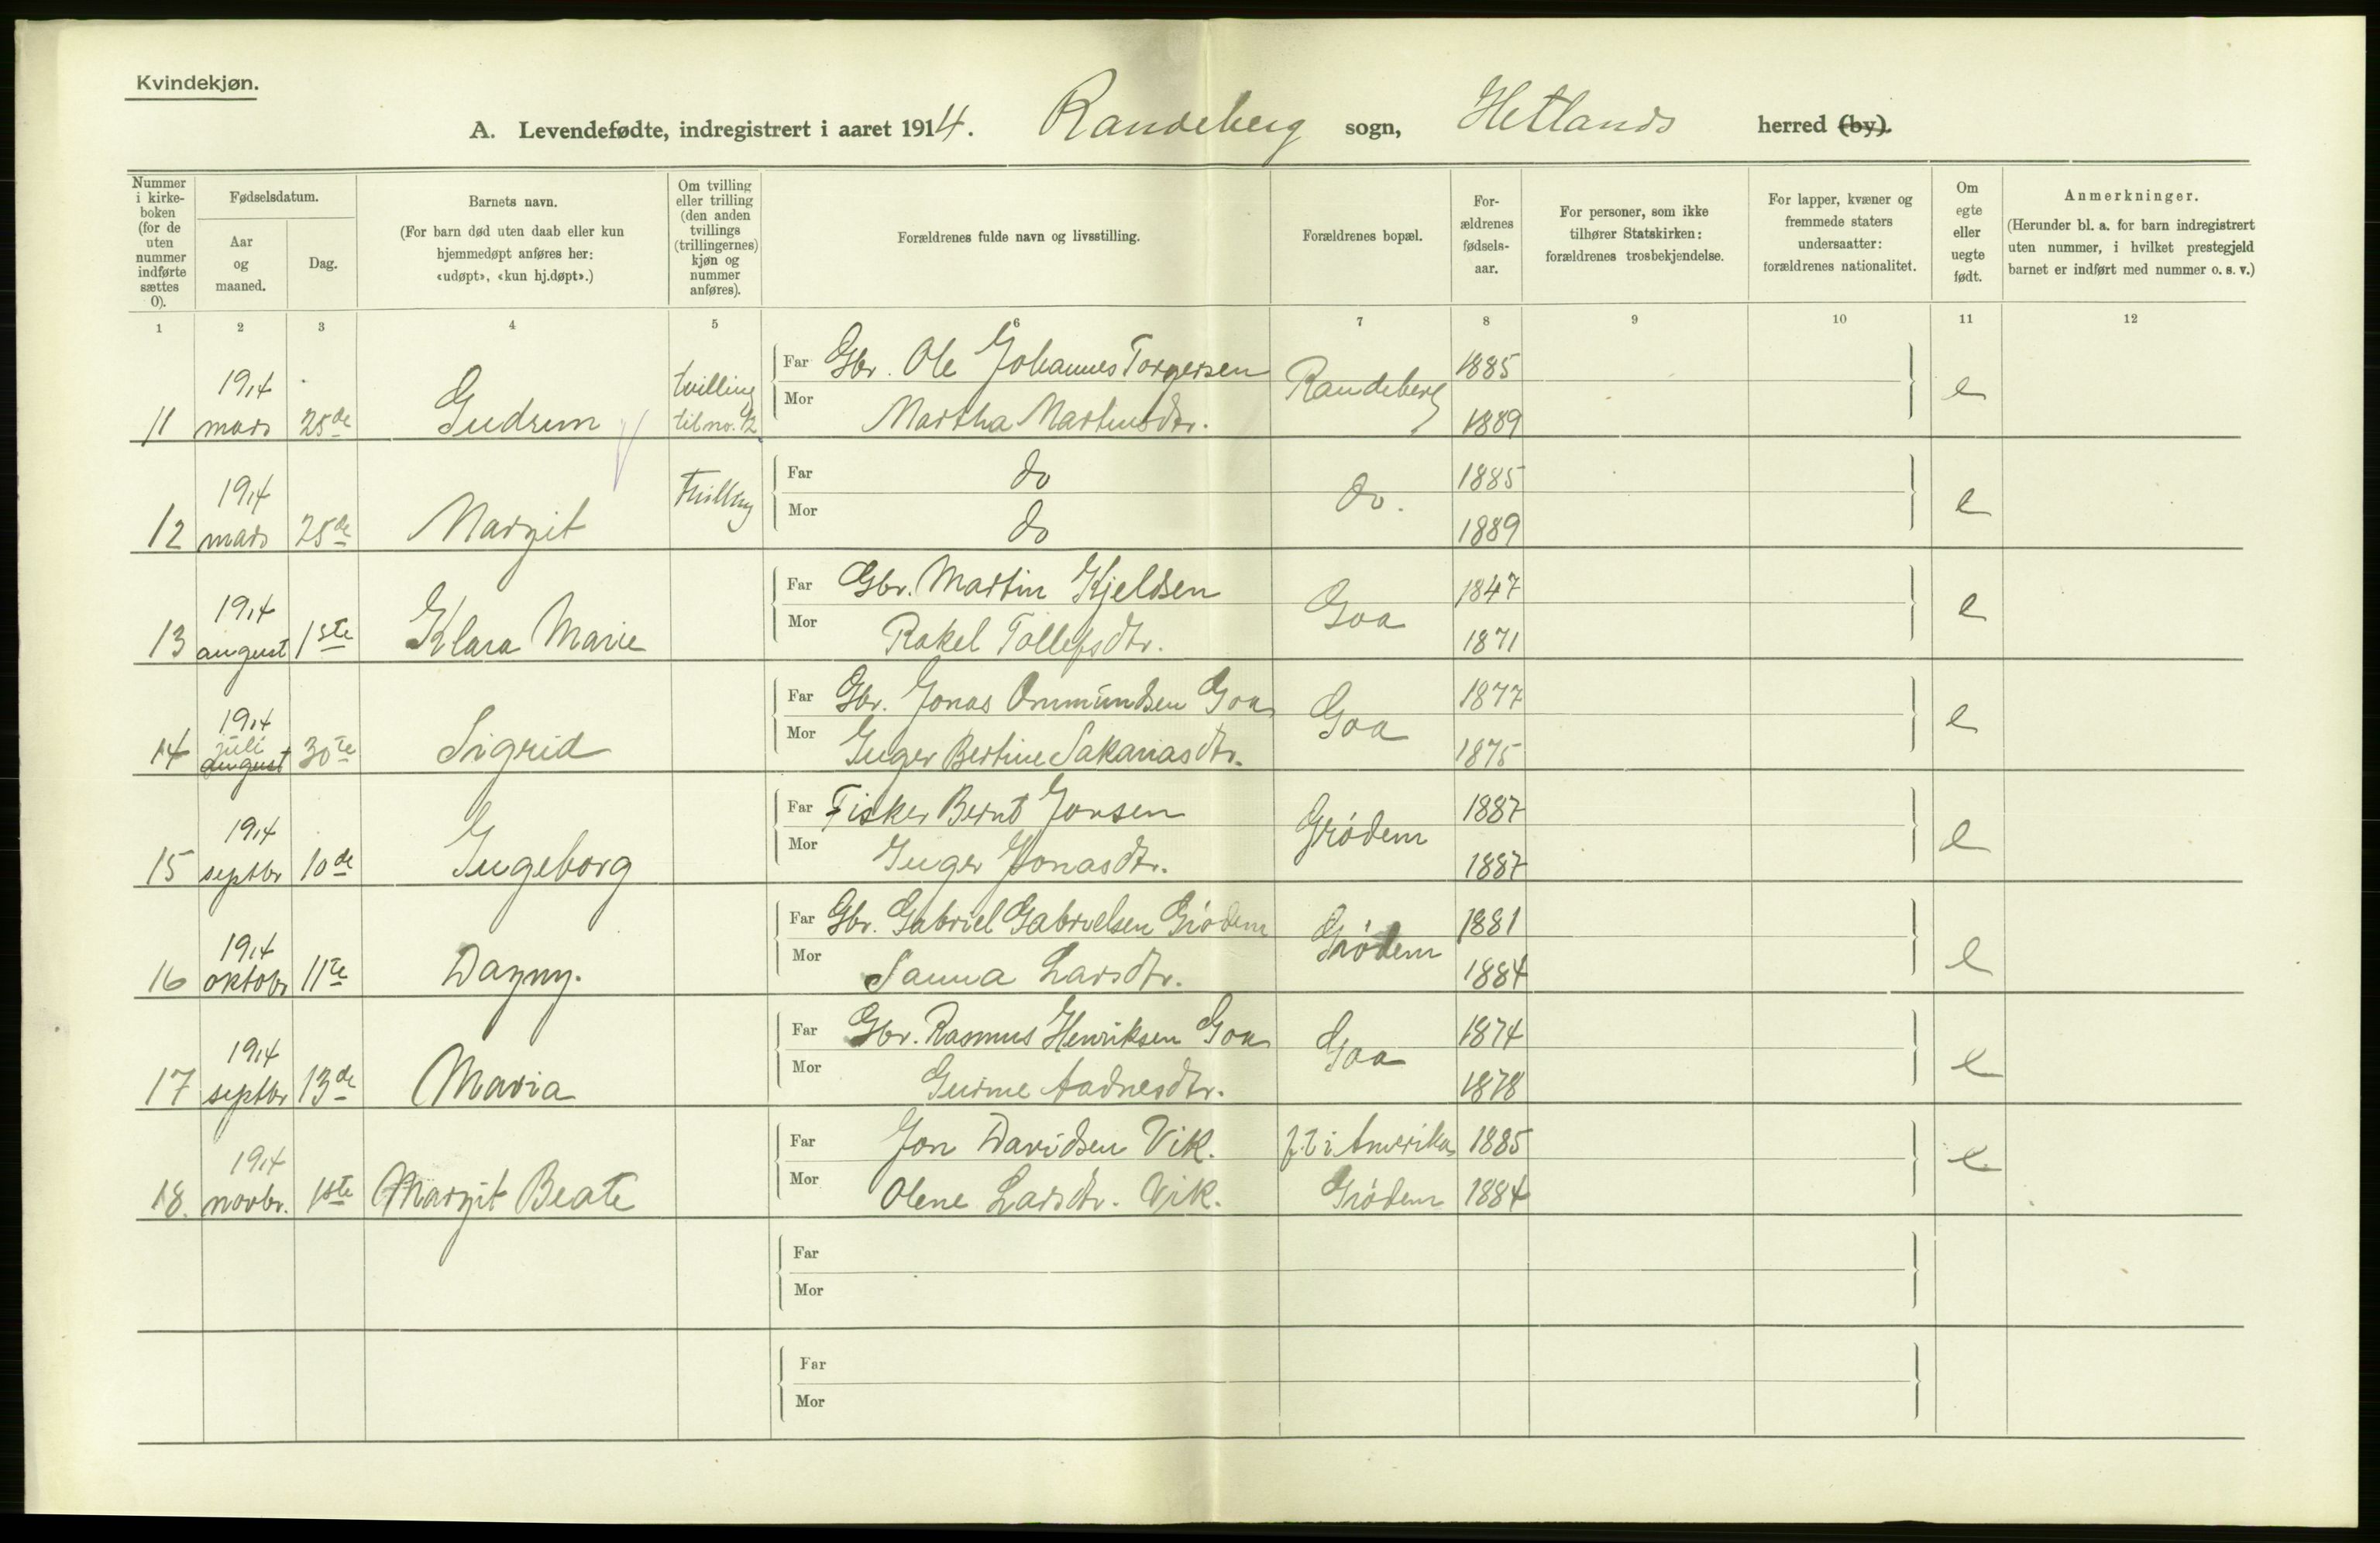 Kvindekjøn.
A. Levendefødte, indregistrert i aaret 1914. Randeberg sogn, Hetlands herred (by).
Nummer i kirke-boken (for de uten nummer indførte sættes 0).
Fødselsdatum.
Aar og maaned.
Dag.
Barnets navn.
(For barn død uten daab eller kun hjemmedøpt anføres her: «udøpt», «kun hj.døpt».)
Om tvilling eller trilling (den anden tvillings (trillingernes) kjøn og nummer anføres).
Forældrenes fulde navn og livsstilling.
Forældrenes bopæl.
For-ældrenes fødsels-aar.
For personer, som ikke tilhører Statskirken: forældrenes trosbekjendelse.
For lapper, kvæner og fremmede staters undersaatter: forældrenes nationalitet.
Om egte eller uegte født.
Anmerkninger.
(Herunder bl. a. for barn indregistrert uten nummer, i hvilket prestegjeld barnet er indført med nummer o. s. v.)
1 2 3 4 5 6 7 8 9 10 11 12
11 1914 mars 25de Gudrun tvilling til no. 12. Far Gbr. Ole Johannes Torgersen Randeberg 1885 e
Mor Martha Martinsdtr. 1889
12 1914 mars 25de Margit Tvilling Far do do. 1885 e
Mor do 1889
13 1914 august 1ste Klara Marie Far Gbr. Martin Kjeldsen Goa 1847 e
Mor Rakel Tollefsdtr. 1871
14 1914 juli august 30te Sigrid Far Gbr. Jonas Ommundsen Goa Goa 1877 e
Mor Inger Bertine Sakariasdtr. 1875
15 1914 septbr 10de Ingeborg Far Fisker Bernt Jonsen Grødem 1887 e
Mor Inger Jonasdtr. 1887
16 1914 oktobr 11te Dagny. Far Gbr. Gabriel Gabrielsen Grødem Grødem 1881 e
Mor Sanna Larsdtr. 1884
17 1914 septbr 13de Maria Far Gbr. Rasmus Henriksen Goa Goa 1874 e
Mor Gurine Aadnesdtr. 1878
18. 1914 novbr. 1ste Margit Beate Far Jon Davidsen Vik. f.t. i Amerika 1885 e
Mor Olene Larsdtr. Vik. Grødem 1884
Far
Mor
Far
Mor